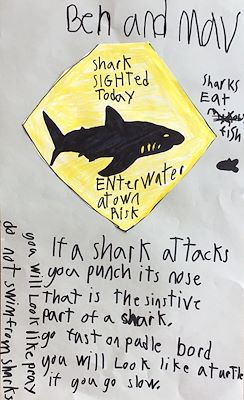 Ben and mav
shark
SIGHTED
Today
ENterwater
atown
Risk
Sharks
Eat
fish
If a shark attacks
you punch its nose
That is the sinstive
part of a shark.
go fast on padle bord
you will Look like a turtle
if you go slow.
you will Look like pray
do not swim from sharks